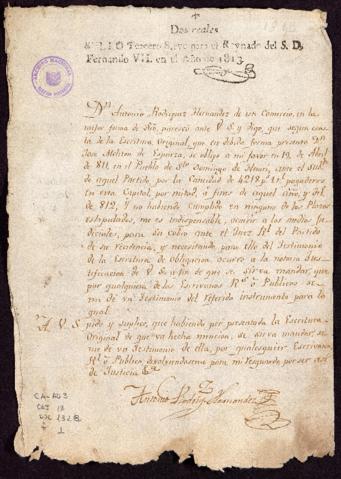 Dos reales
SELLO Tercero Sirve para el Reynado del S. D.
Fernando VII. en el Año de 1813.
Dn. Antonio Rodrigz Hernandez de este Comercio, en la
mejor forma de dro, paresco ante V. S. y digo, que segun cons-
ta de la Escritura Original, que en debida forma presento Dn
José Meliton de se obligó a mi favor en 19, de Abril
de 811, en el Pueblo de Sto Domingo de ante el
de aquel Partido por la Cantidad de 4218 ps pagaderos
en esta Capital, por mitad, á fines de aquel año, y del
de 812, y no habiendo cumplido en ninguno de los Plazos
estipulados, me es indispensable, ocurrir a los medios ju-
diciales, para su cobro ante el Juez Rl del Partido
de su recidencia, y necesitando para ello del Testimonio
de la Escritura de obligacion ocurro a la notoria Jus-
tificacion de V. S. á fin de que se sirva mandar, que
por qualquiera de los Escrivanos Rs ó Publicos se
me dé un Testimonio del referido instrumento para lo
qual.
A. V. S. pido y suplico, que habiendo por presentada la Escritura
Original de que va hecha mencion, se sirva mandar, se
me dé un Testimonio de ella, por qualesquier Escrivano
Rl ó Publico, debolviendoseme para mi resguardo por ser asi
de Justicia &a
Antonio Rodrigz Hernandez
CA-AD3
CAJ 18
DOC 1328
f 1